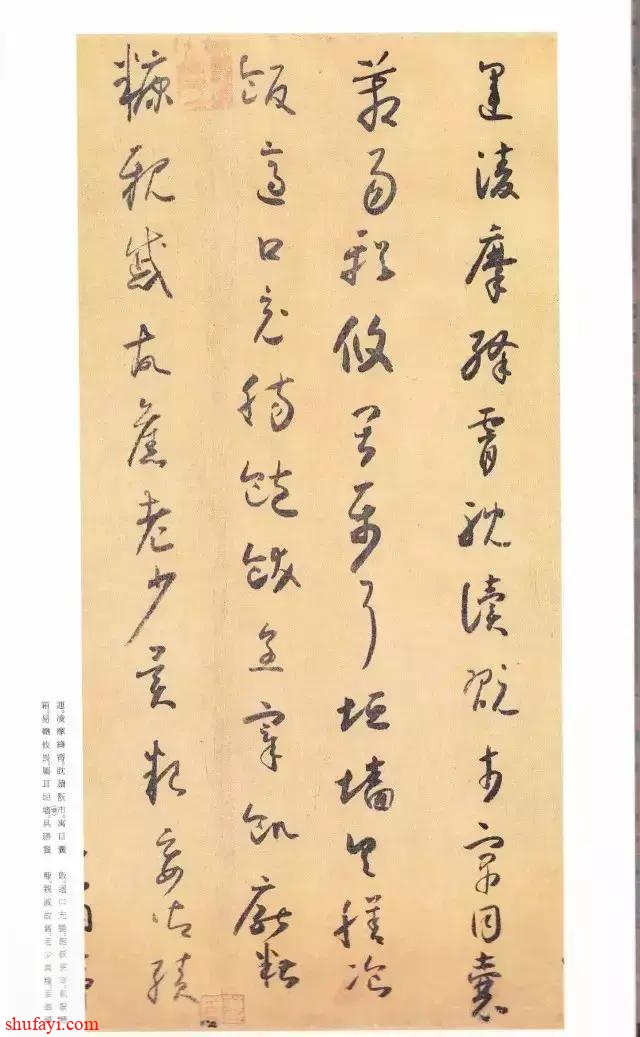 運凌摩絳霄耽讀翫市寓目囊
箱易輶攸畏屬耳垣墻具膳飡
飯適口充腸飽飫烹宰飢厭糟
糠親戚故舊老少異糧妾御績
運。凌摩絳霄。耽讀翫市。寓目囊
箱。易輶攸畏。屬耳垣墻。具膳餐
飯。適口充腸。飽飫烹宰。飢厭糟
糠。親戚故舊。老少異糧。妾御績
shufayi.com